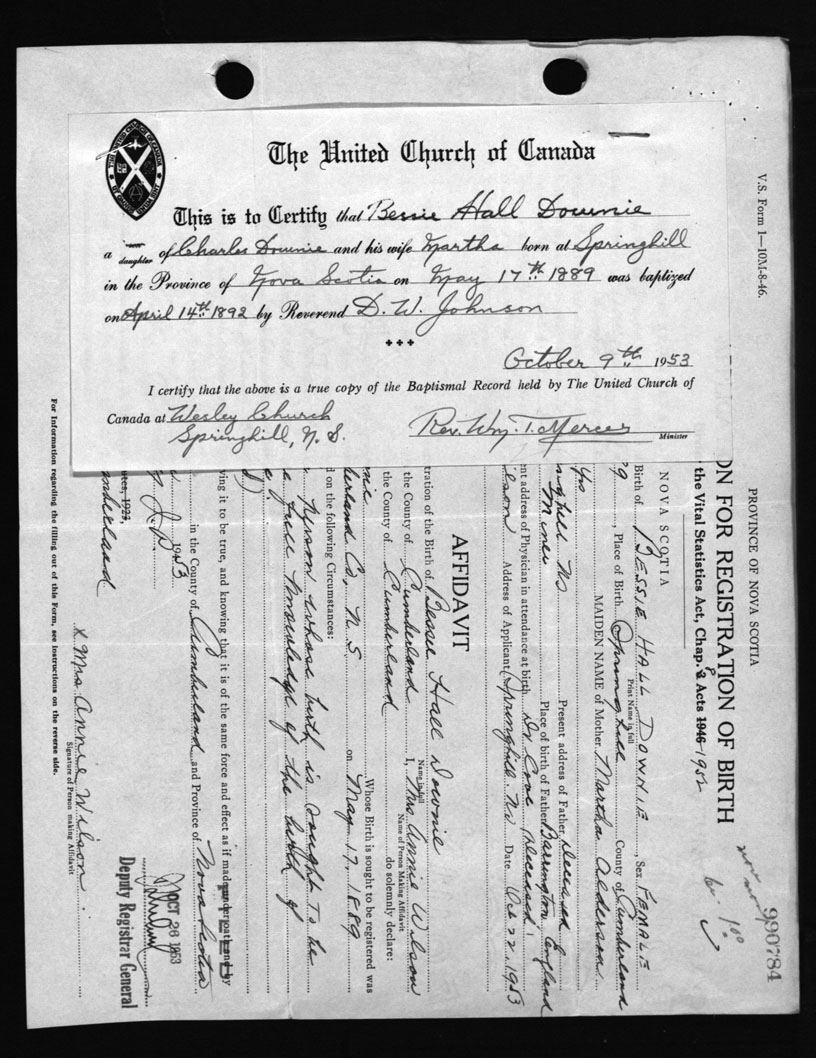 The United Church of Canada
This is to Certify that Bessie Hall Downie
a son daughter of Charles Downie and his wife Martha born at Springhill
in the Province of Nova Scotia on May 17th 1889 was baptized
on April 14th 1892 by Reverend D. W. Johnson
October 9th 1953
I certify that the above is a true copy of the Baptismal Record held by The United Church of
Canada at Wesley Church
Springhill, N. S. Rev. Wm. T. Mercer
Minister
V.S. Form 1—10M-8-46.
990784
PROVINCE OF NOVA SCOTIA
ON FOR REGISTRATION OF BIRTH
the Vital Statistics Act, Chap. 8 Acts 1946 1952
NOVA SCOTIA
Birth of BESSIE HALL DOWNIE, Sex FEMALE
Print Name in full
9, Place of Birth Springhill County of Cumberland
MAIDEN NAME of Mother Martha Alderson
Yrs Present address of Father Deceased
Springhill NS
Miner Place of birth of Father Barrington England
nt address of Physician in attendance at birth Dr Cove Deceased
ilson Address of Applicant Springhill. N.S Date Oct 22, 1953
AFFIDAVIT
tration of the Birth of Bessie Hall Downie
Name in full
the County of Cumberland I, Mrs Annie Wilson
Name of Person Making Affidavit
the County of Cumberland do solemnly declare:
nie Whose Birth is sought to be registered was
berland Co, N. S. on May 17, 1889
d on the following Circumstances:
person whose birth is sought to be
full knowledge of the birth of
ving it to be true, and knowing that it is of the same force and effect as if made under oath and by
in the County of Cumberland and Province of Nova Scotia
1953
J.P.
utes, 1923,
mberland
OCT 26 1953
Deputy Registrar General
x Mrs Annie Wilson
Signature of Person making Affidavit
For Information regarding the filling out of this Form, see instructions on the reverse side.